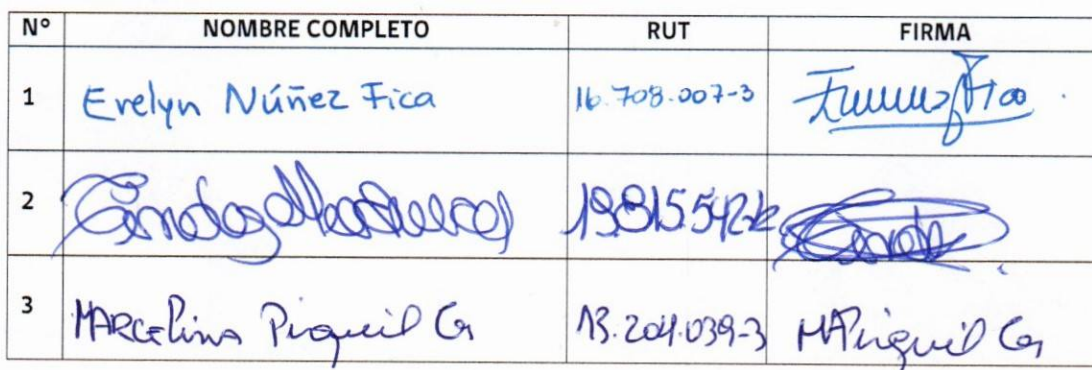 N° NOMBRE COMPLETO RUT FIRMA
1 Evelyn Núñez Fica 16.708.007-3
2 19.815.542-k
3 MARCELina Piquil G 13.204.039-3 MPiquil G